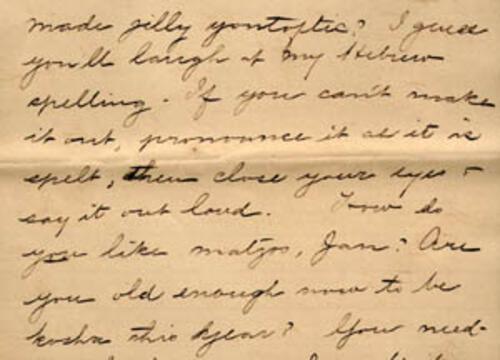 made jelly yontoptic? I guess
you'll laugh at my Hebrew
spelling. If you can't make
it out, pronounce it as it is
spelt, then close your eyes +
say it out loud. How do
you like matzos, Jan? Are
you old enough now to be
kosha this year? You need-